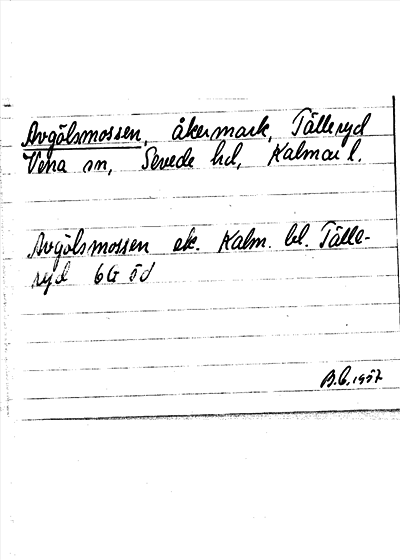 Avgölsmossen, åkermark, Tälleryd
Vena sn, Sevede hd, Kalmar l.
Avgölsmossen ek. Kalm. bl. Tälle-
ryd 6G öd
B.G. 1957